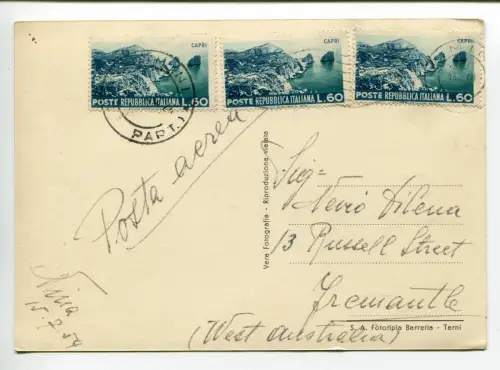 CAPRI CAPRI CAPRI
POSTE REPUBBLICA ITALIANA L.60 POSTE REPUBBLICA ITALIANA L.60 POSTE REPUBBLICA ITALIANA L.60
PART.
Posta aerea
Vera Fotografia - Riproduzione vietata
Sig=
Nevio Vilena
13 Russell Street
Fremantle
(West Australia)
15.7.54
S. A. Fototipia Berretta - Terni